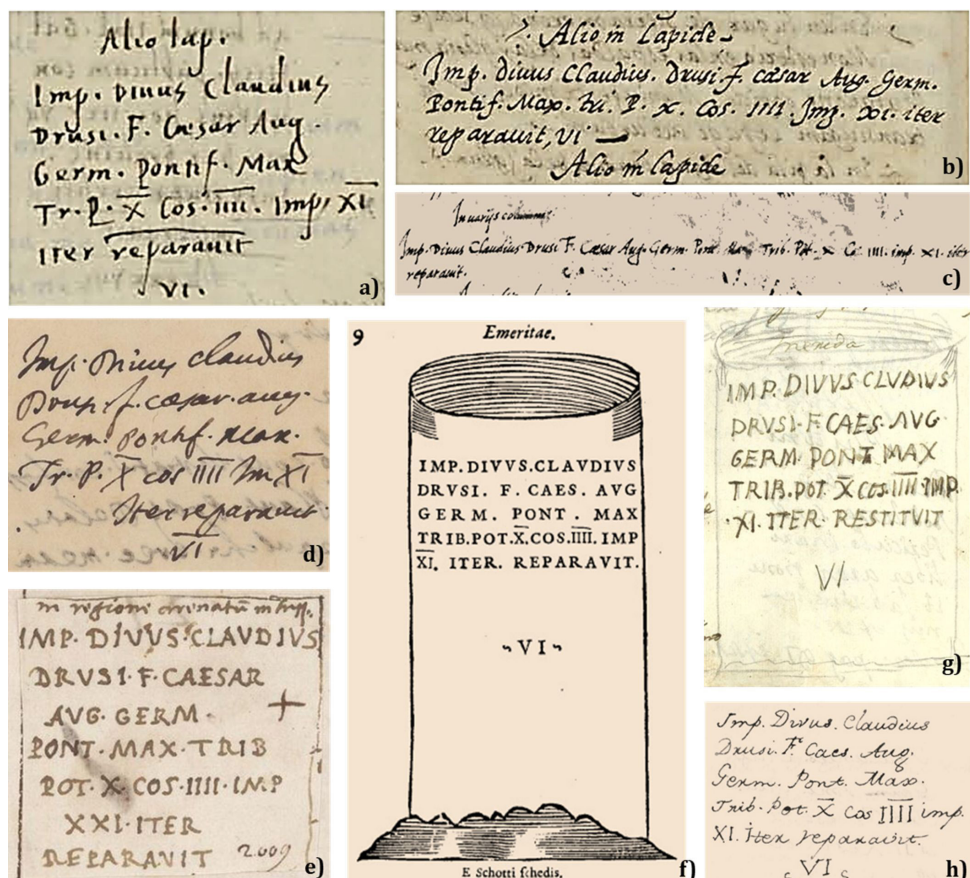 Alio lap.
Imp. DIVUS Claudius
Drusi. F. Cæsar Aug.
Germ. Pontif. Max
Tr. P. X Cos. IIII. Imp, XI
iter reparauit
VI.
a)
Alio in Lapide
Imp. divus Claudius. Drusi. f. cæsar Aug. Germ.
Pontif. Max. P. X. Cos. IIII. Imp. XI. iter
reparauit, VI
Alio in lapide
b)
In varijs columnis
Imp. Divus Claudius Drusi F. Cæsar Aug. Germ. Pont Max Trib. Pot. X Co IIII. imp. XI. iter
reparauit.
c)
Imp. Divus claudius
f. cæsar. aug.
Germ. Pontif. Max.
Tr. P. X cos IIII Im XI
Iter reparauit.
VI
d)
in regione
IMP. DIVVS. CLAVDIVS
DRVSI. F. CAESAR
AVG. GERM.
PONT. MAX. TRIB
POT. X. COS. IIII. IMP
XXI. ITER
REPARAVIT 2009
e)
9 Emeritae.
IMP. DIVVS. CLAVDIVS
DRVSI. F. CAES. AVG
GERM. PONT. MAX
TRIB. POT. X. COS. IIII. IMP
XI. ITER. REPARAVIT.
~VI~
E Schotti schedis.
f)
merida
IMP. DIVVS. CLVDIVS
DRVSI. F CAES. AVG
GERM. PONT MAX
TRIB. POT. X COS. IIII IMP.
XI. ITER. RESTITVIT
VI
g)
Imp. Divus. Claudius
Drusi. F. Caes. Aug.
Germ. Pont. Max.
Trib. Pot. X Cos IIII imp.
XI. Iter reparavit.
VI
h)